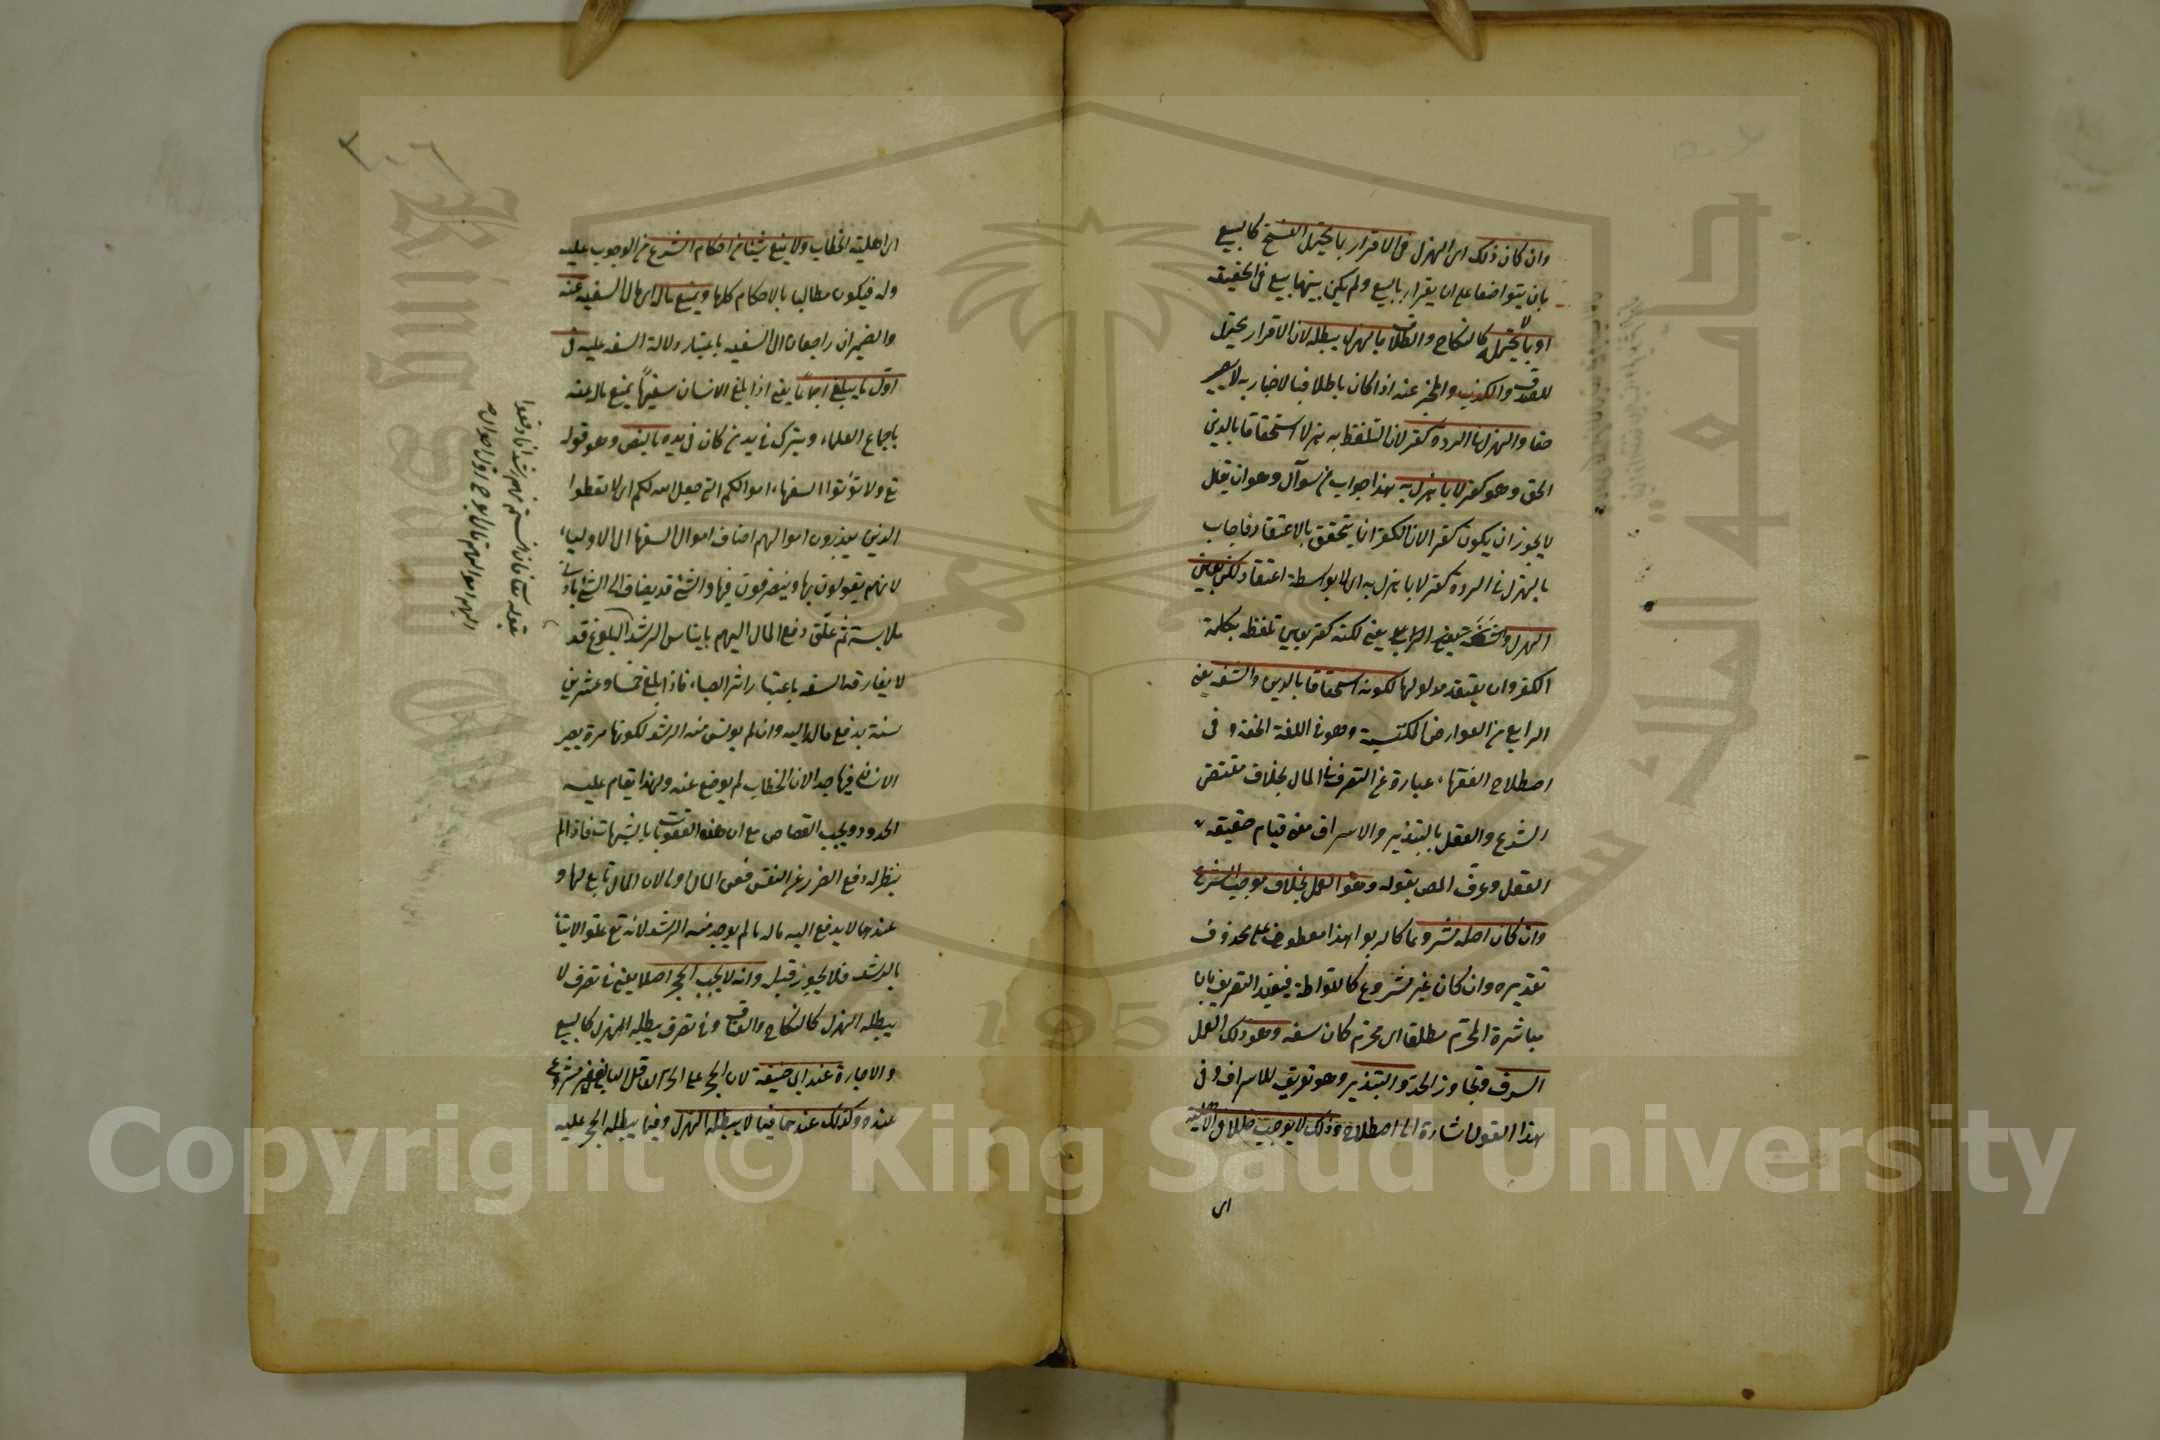 وان كان ذلك اى الهزل فى الاقرار بما يحتمل الفسخ كالبيع
بان يتواضعا على ان يقرا بالبيع ولم يكن بينهما بيع فى الحقيقة
او بما لا يحتمله كالنكاح والطلاق بالهزل يبطله لان الاقرار يحتمل
للصدق والكذب والمخبر عنه اذا كان باطلا فبالاخبار به لا يصير
حقا والهزل فى الردة كفر لان التلفظ به هزلا استخفافا بالدين
الحق وهو كفر لا بما هزل به هذا جواب عن سوآل وهو ان يقال
لا يجوز ان يكون كفرا لان الكفر انما يتحقق بالاعتقاد فاجاب
بالهزل فى الردة كفر لا بما هزل به اى لا بواسطة اعتقاد لكن بعين
الهزل يعنى لكنه كفر بعين تلفظه بكلمة
الكفر وان يعتقد مدلولها لكونه استخفافا بالدين والسفه يعنى
الرابع من العوارض المكتسبة وهو فى اللغة الخفة وفى
اصطلاح الفقهاء عبارة عن التصرف فى المال بخلاف مقتضى
الشرع والعقل بالتبذير والاسراف مع قيام حقيقة
العقل وعرف المص بقوله وهو العمل بخلاف موجب الشرع
وان كان اصله مشروعا كالربوا هذا معطوف على محذوف
تقديره وان كان غير مشروع كاللواطة فيفيد التعريف بان
مباشرة المحرم مطلقا اى محرم كان سفه وهو ذلك العمل
السرف وتجاوز الحد والتبذير وهو تفريق للاسراف وفى
هذا القول اشارة الى اصطلاح وذلك لا يوجب خللا فى الاهلية
اى
٣٠٦
اى اهلية الخطاب ولا يمنع شيئا من احكام الشرع من الوجوب عليه
وله فيكون مطالبا بالاحكام كلها ويمنع ماله اى مال السفيه عنه
والضميران راجعان الى السفيه باعتبار دلالة السفه عليه فى
اول ما يبلغ اجماعا يعنى اذا بلغ الانسان سفيها يمنع ماله عنه
باجماع العلماء ويترك فى يد من كان فى يده بالنص وهو قوله
تع ولا تؤتوا السفهاء اموالكم التى جعل الله لكم اى لا تعطوا
الذين يبذرون اموالهم اضاف اموال السفهاء الى الاولياء
لانهم يقومون بها ويتصرفون فيها والشئ قد يضاف الى الشئ بادنى
ملابسة ثم علق دفع المال اليهم بايناس الرشد البلوغ قد
لا يفارقه السفه باعتبار اثر الصباء فاذا بلغ خمسا وعشرين
سنة يدفع ماله اليه وان لم يونس منه الرشد لكونها مدة يصير
الانسان فيها جدا لان الخطاب لم يوضع عنه ولهذا يقام عليه
الحدود ويجب القصاص مع ان هذه العقوبات بالشبهات فاذا لم
ينظر له دفع الضرر عن النفس فعن المال اولى لان المال تابع لها و
عندهما لا يدفع اليه ماله ما لم يوجد منه الرشد لانه تع علق الايتاء
بالرشد فلا يجوز قبله وانه لا يجب الحجر اصلا يعنى فى تصرف لا
يبطله الهزل كالنكاح والعتاق وفى تصرف يبطله الهزل كالبيع
والاجارة عند ابى حنيفة لان الحجر على الحر العاقل البالغ غير مشروع
عنده وكذلك عندهما فيما لا يبطله الهزل وفيما يبطله الحجر عليه
بقوله تع فان آنستم منهم رشدا فادفعوا
اليهم اموالهم